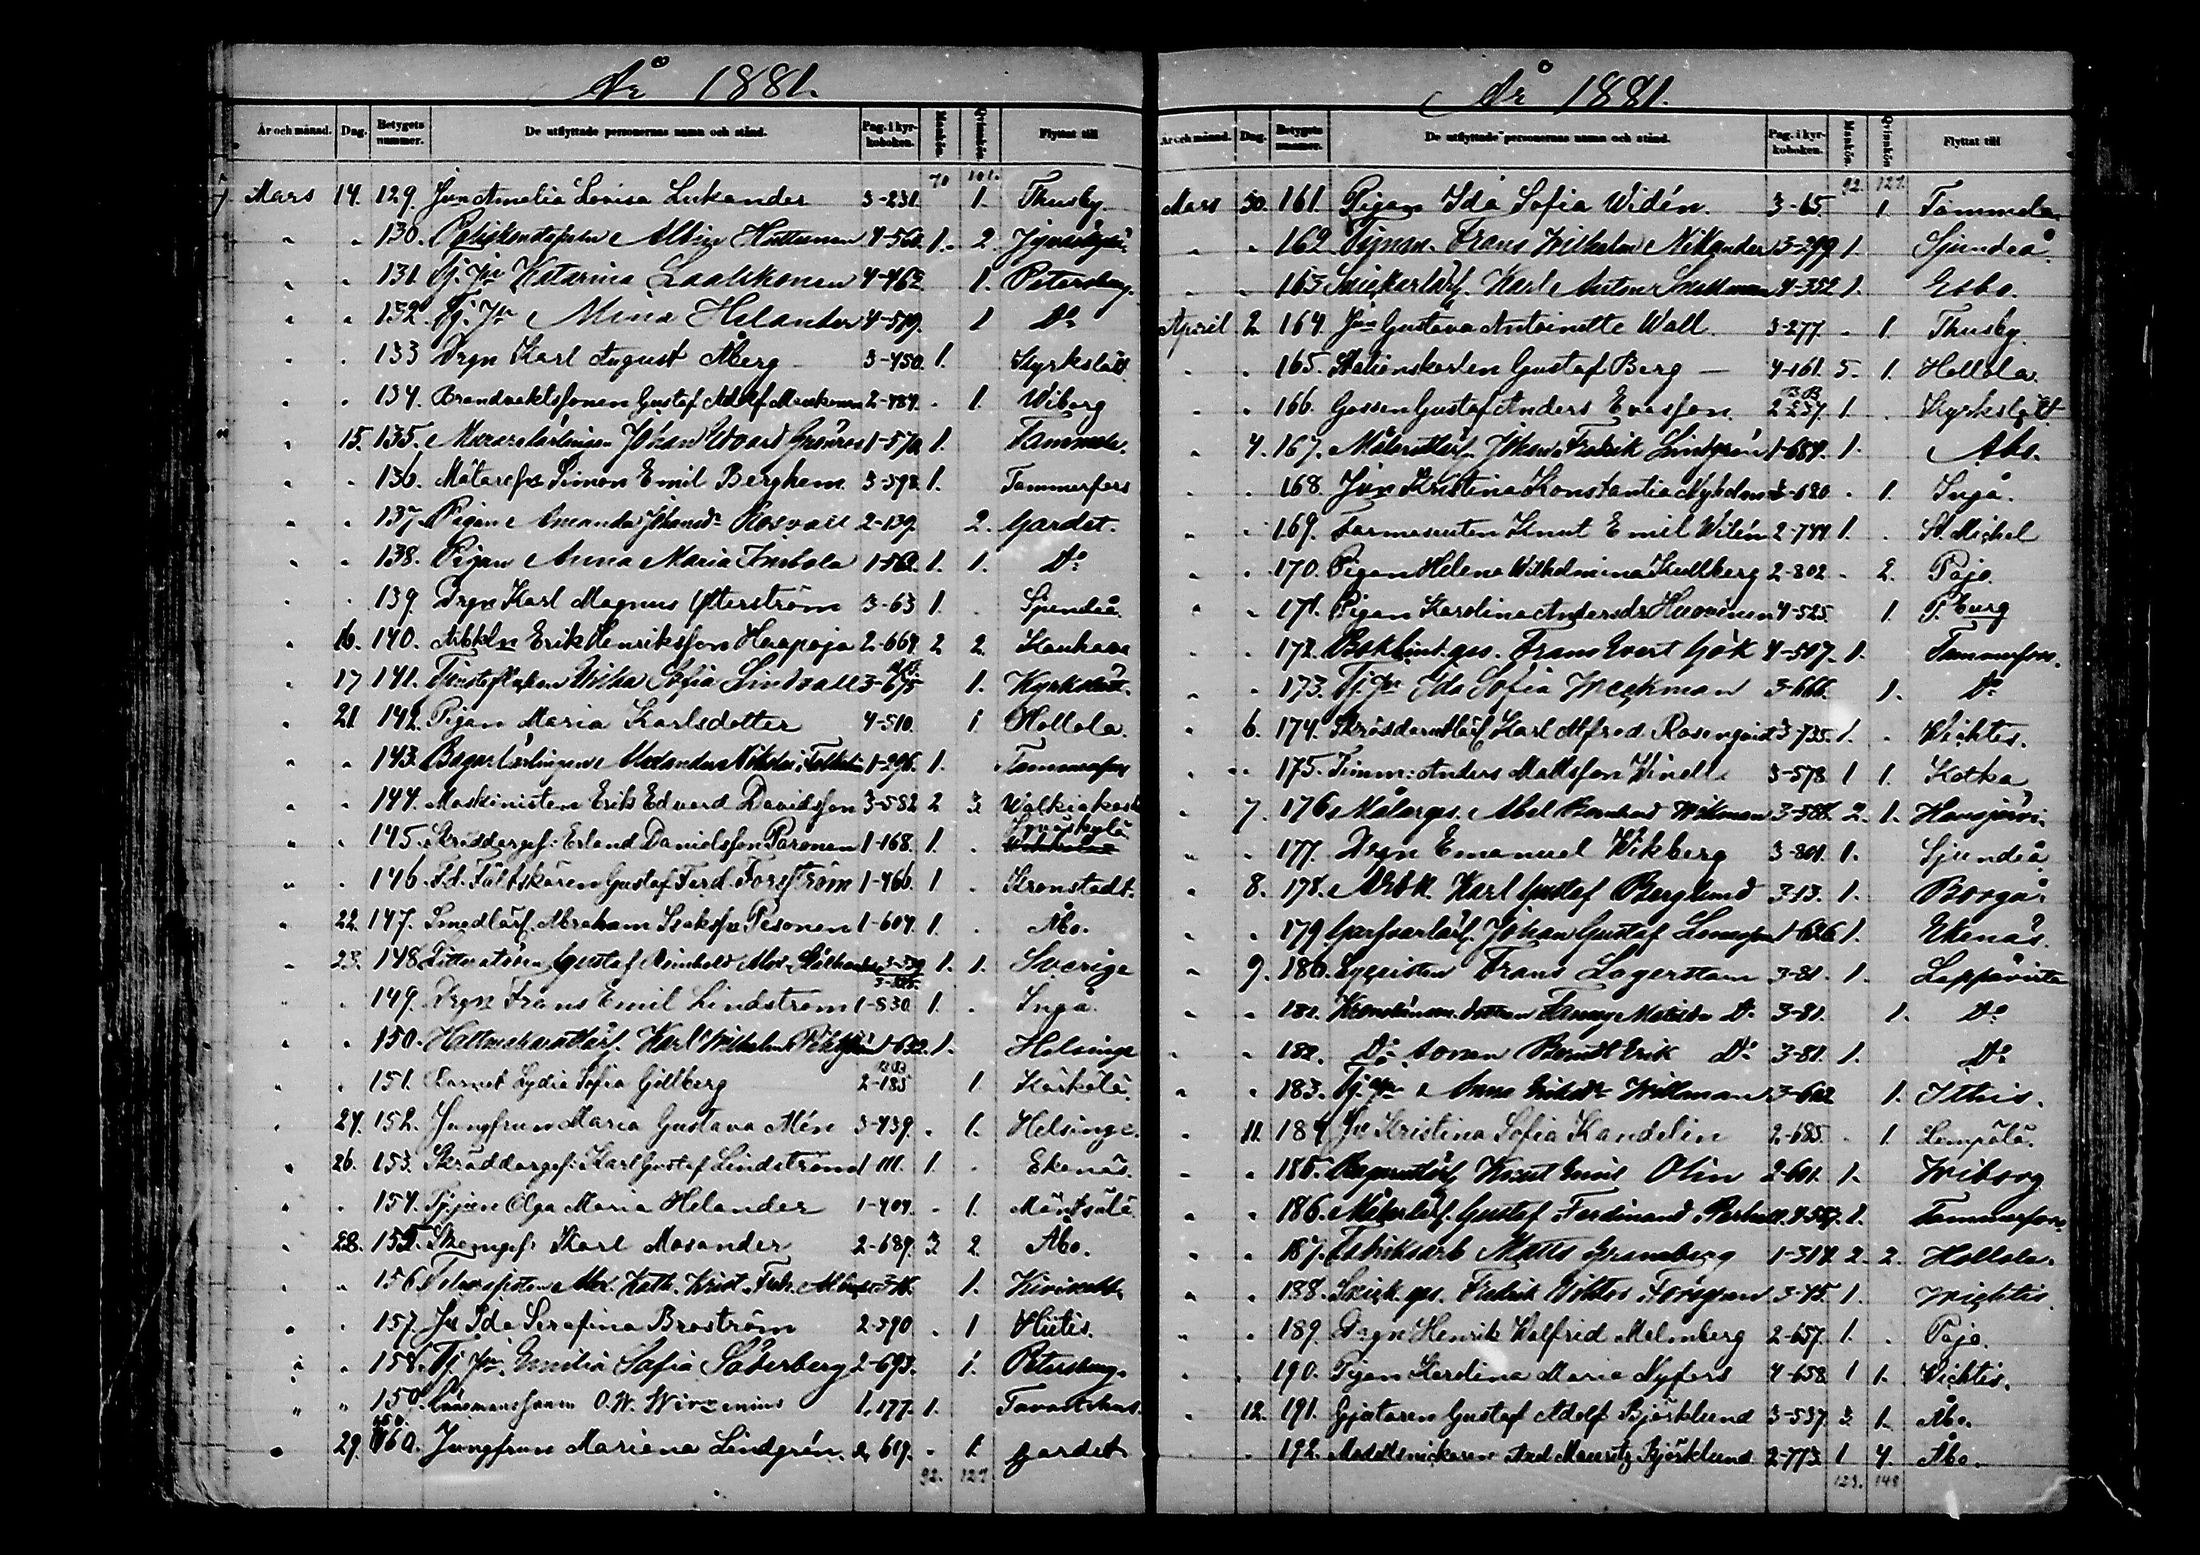 År 1881.
År och månad. Dag. Betygets nummer. De utflyttade personernas namn och stånd. Pag. i kyrkoboken. Mankön. Qvinnkön. Flyttat till
70 101.
Mars 14. 129. Jun Amalia Lovisa Lukander 3-231. 1. Thusby.
" " 130. Albin Huttunen 4-560. 1. 2. Jyväskylä
" " 131. Tj. Jn Katarina Laalskonen 4-462 1. Petersburg.
" " 132. Tj. Jn Mina Helander 4-519. 1 Do
" " 133 Drgn Karl August Åberg 3-450. 1. Kyrkslätt.
" " 134. Brandvaktsonen Gustaf Adolf 2-484. - 1. Wiborg
" 15. 135. Murarelärlingen Johan Edvard 1-570. 1. Tammela.
" " 136. Simon Emil Berghem 3-598. 1. Tammerfors
" " 137. Pigan Amanda Johansdr Rosvall 2-139. 2. Gardet.
" " 138. Pigan Anna Maria 1-562. 1. 1. Do
" " 139 Drgn Karl Magnus Öfterström 3-63 1. . Sjundeå.
" 16. 140. Arbkln Erik Henriksson Haapoja 2-664. 2 2. Kauhava
" 17 141. Sofia Lindvall 3-675 1. Kyrkslätt.
" 21 142. Pigan Maria Karlsdotter 4-510. 1 Hollola.
" " 143. Bagarlärlingen Alexander Nikolai 1-296. 1. Tammerfors
" " 144. Maskinisten Erik Edvard Davidsson 3-582 2 3. Walkiakoski
" " 145. Skräddargef: Erland Danielsson Paronen 1-168. 1. . Jyväskylä
" " 146. Fd. Fältskären Gustaf Ferd. Forsström 1-466. 1 . Kronstadt.
" 22. 147. Smedlärl. Abraham Isaksson Pesonen 1-604. 1 . Åbo.
" 23. 148. Gustaf Reinhold 3-339 1. 1. Sverige
" " 149. Drgn Frans Emil Lindström 1-830. 1. . Ingå.
" " 150. Karl Wilhelm 1-632. 1. Helsinge
" " 151. Barnet Lydia Sofia Gillberg 2-185 1. Kärkölä.
" 24. 152. Jungfrun Maria Gustava Alén 3-439. . 1. Helsinge.
" 26. 153. Skräddargef: Karl Gustaf Lindström 1-111. 1. . Ekenäs.
" " 154. Tj. jun Olga Maria Helander 1-404. - 1. Mäntsälä.
" 28. 155. Karl Mosander 2-689. 3 2. Åbo.
" " 156. 1.
" " 157. Jn Ida Serafina Broström 2-590 . 1 Hiitis.
" " 158. Tj. Jn. Emilia Sofia Söderberg 2-693. 1. Petersburg.
" " 159. Länsmanssonen O. W. Wirzenius 1,177. 1. Tavastehus.
" 29. 160. Jungfrun Mariana Lindgrén. 2, 619. - 1. gardet
92. 127.
År 1881.
År och månad. Dag. Betygets nummer. De utflyttade personernas namn och stånd. Pag. i kyrkoboken. Mankön. Qvinnkön Flyttat till
92. 127.
Mars 30. 161. Pigan Ida Sofia Widén. 3-65. 1. Tammela.
" " 162 Frans Wilhelm Nikander 3-299. 1. Sjundeå.
" " 163 Snickarlärl. Karl Anton 4-352 1. Esbo.
April 2. 164. Jun Gustava Antoinette Wall 3-277. - 1. Thusby.
" " 165. Stationskarlen Gustaf Berg — 4-161. 5. 1. Hollola.
" " 166. Gossen Gustaf Anders Evasson 2-257. 1. . Kyrkslätt.
" 4. 167. Målarelärl. Johan Fredrik Lindgrén 1-684. 1. Åbo.
" " 168. Jun Kristina Konstantia Nyholm - 1. Ingå.
" " 169. Farmaceuten Knut Emil Wilén 2-744 1. . St. Michel
" " 170. Pigan Helena Wilhelmina Kullberg 2-802 - 2. Pojo.
" " 171. Pigan Karolina Andersdr Huovinen 4-525 1. P. burg
" " 172. Frans Evert Gök 4-507. 1. Tammerfors.
" " 173. Tj. Jn Ida Sofia Weckman 3-666. 1. Do
" 6. 174. Karl Alfred Rosenqvist 3-735. 1. . Wichtis.
" " 175. Timm: Anders Mattsson Vinell 3-578 1 1. Kotka
" 7. 176. Målarges. Abel Bernhard Wikman 3-588. 2. 1. Hausjärvi.
" " 177. Drgn Emanuel Wikberg 3-801. 1. Sjundeå
" 8. 178. Arbk. Karl Gustaf Berglund 3-13. 1. Borgå.
" " 179 Garfvarlärl. Johan Gustaf 1-626 1. Ekenäs.
" 9. 180. Frans Lagerstam 3-81. 1. Leppävirta
" " 181. Fanny Matilda Do 3-81. 1. Do
" " 182. Do sonen Berndt Erik Do 3-81. 1. Do
" " 183. Tj. Jn Anna Eriksdr Willman 3-602 1. Ithis.
" 11. 184 Jn Kristina Sofia Kandelin 2-685. - 1. Lempälä.
" " 185. Knut Emil Olin 2-601. 1. Wiborg
" " 186. Målarlärl. Gustaf Ferdinand 4-557. 1. Tammerfors.
" " 187. Fabriksarb Matts Granberg 1-314. 2. 2. Hollola.
" " 188. Snick. ges. Fredrik Viktor Forsman 3-45. 1. Wichtis.
" " 189. Drgn Henrik Walfrid Malmberg 2-657. 1. . Pojo.
" " 190. Pigan Karolina Maria Nyfors 4-658 1 1. Wichtis.
" 12. 191. Gjutaren Gustaf Adolf Björklund 3-537 3. 1. Åbo.
" " 192. Modellsnickaren Axel Mauritz Björklund 2-773. 1 4. Åbo.
123. 148